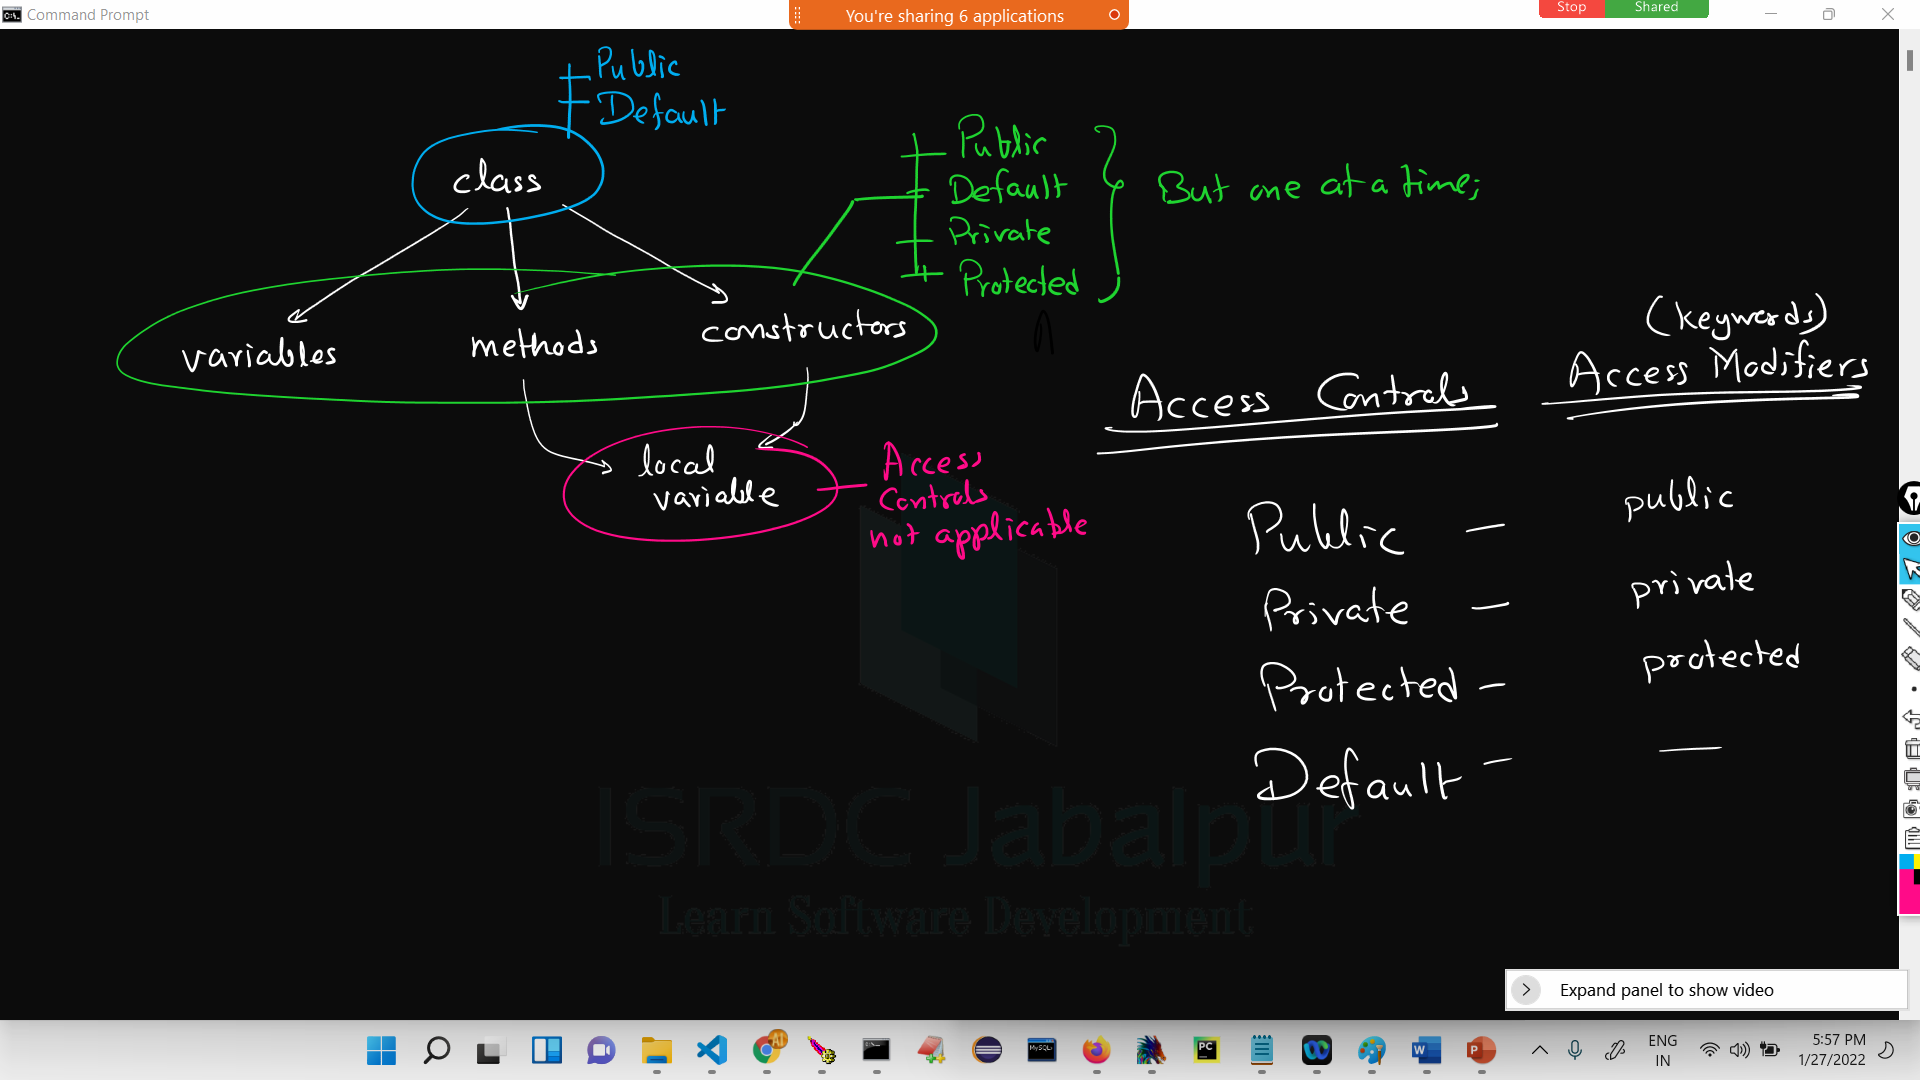 Command Prompt
You're sharing 6 applications
Stop
Shared
Public
Default
class
Public
Default
Private
Protected
But one at a time;
variables
methods
constructors
local
variable
Access
Controls
not applicable
(keywords)
Access Controls
Access Modifiers
Public – public
Private – private
Protected – protected
Default – —
ISRDC Jabalpur
Learn Software Development
Expand panel to show video
ENG
IN
5:57 PM
1/27/2022